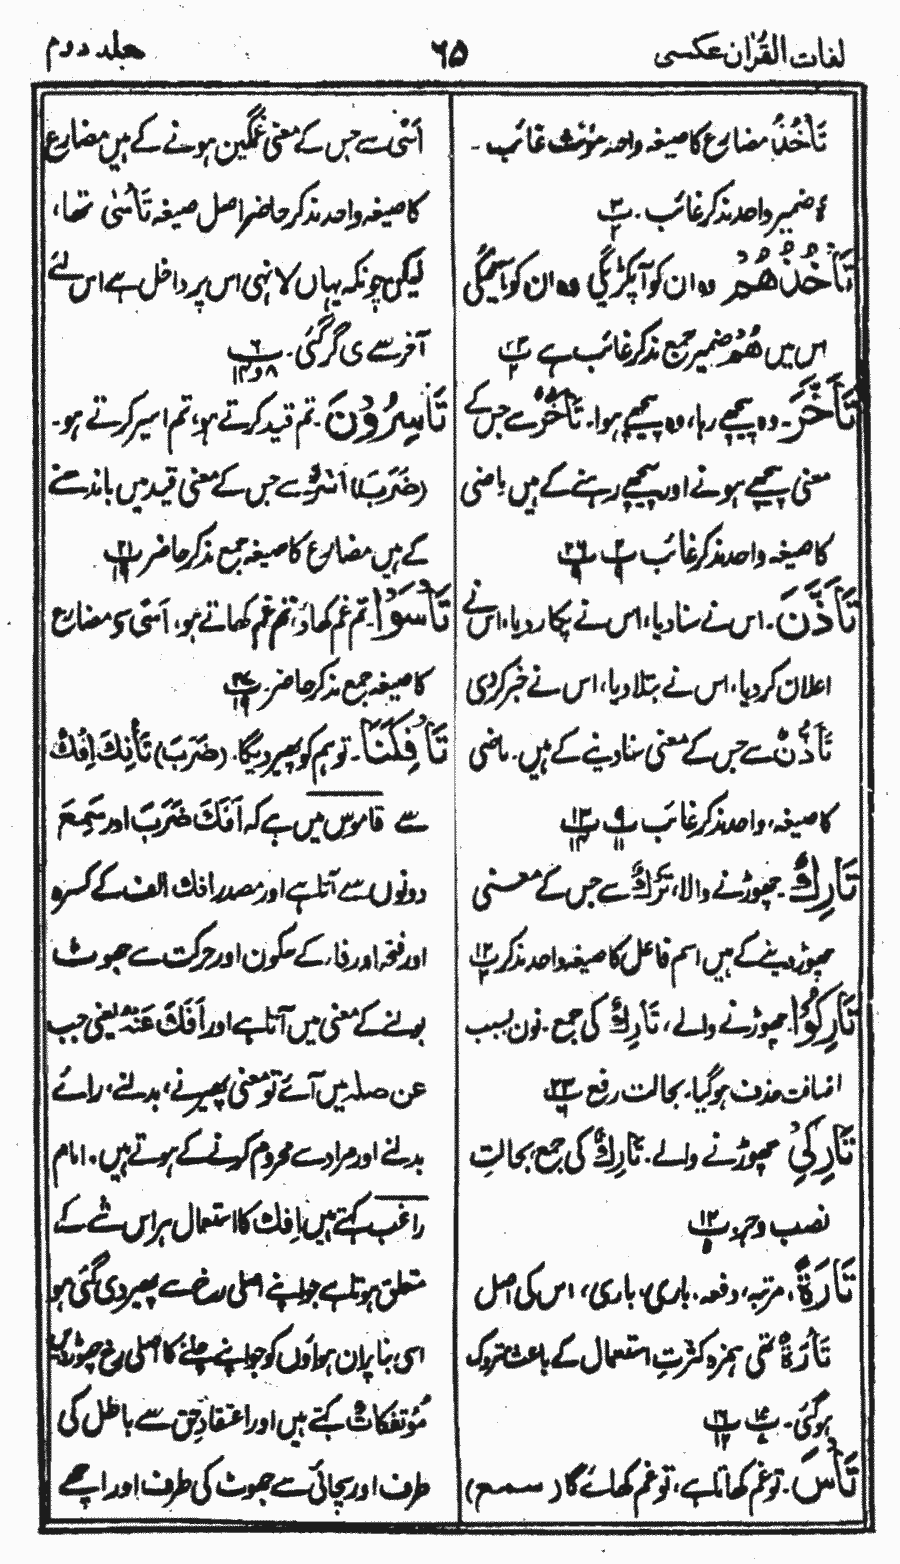 لغات القُرْاٰن عکسی
۶۵
جلد دوم
تَأْخُذُ مضارع کا صیغہ واحد مؤنث غائب -
ۂ ضمیر واحد مذکر غائب .
تَأْخُذُهُمْ وہ ان کو آپکڑیگی وہ ان کو آلیگی
اس میں هُمْ ضمیر جمع مذکر غائب ہے
تَأَخَّرَ - وہ پیچھے رہا ، وہ پیچھے ہوا . تَأَخُّرٌ سے جس کے
معنی پیچھے ہونے اور پیچھے رہنے کے ہیں ماضی
کا صیغہ واحد مذکر غائب
تَأَذَّنَ - اس نے سنا دیا ، اس نے پکار دیا ، اس نے
اعلان کر دیا ، اس نے بتلا دیا ، اس نے خبر کر دی
تَأَذُّنٌ سے جس کے معنی سنا دینے کے ہیں . ماضی
کا صیغہ ، واحد مذکر غائب
تَارِكٌ - چھوڑنے والا ، تَرْكٌ سے جس کے معنی
چھوڑ دینے کے ہیں اسم فاعل کا صیغہ واحد مذکر
تَارِكُوْا - چھوڑنے والے ، تَارِكٌ کی جمع . نون بسبب
اضافت حذف ہو گیا . بحالت رفع
تَارِكِي چھوڑنے والے . تَارِكٌ کی جمع بحالتِ
نصب وجر
تَارَةً ، مرتبہ ، دفعہ ، باری ، باری ، اس کی اصل
تَأْرَةٌ تھی ہمزہ کثرتِ استعمال کے باعث متروک
ہو گئی -
تَأْسَ . تو غم کھاتا ہے ، تو غم کھائے گا ( سمع )
اَسًى سے جس کے معنی غمگین ہونے کے ہیں مضارع
کا صیغہ واحد مذکر حاضر اصل صیغہ تَأْسٰى تھا ،
لیکن چونکہ یہاں لا نہی اس پر داخل ہے اس لئے
آخر سے ی گر گئی .
تَأْسِرُوْنَ . تم قید کرتے ہو ، تم اسیر کرتے ہو .
(ضَرَبَ) اَسْرٌ سے جس کے معنی قید میں باندھنے
کے ہیں مضارع کا صیغہ جمع مذکر حاضر
تَأْسَوْا . تم غم کھاؤ ، تم غم کھاتے ہو ، اَسًى سے مضارع
کا صیغہ جمع مذکر حاضر .
تَأْفِكَنَا . تو ہم کو پھیر دیگا . (ضَرَبَ) تَأْفِكَ اِفْكٌ
سے قاموس میں ہے کہ اَفَكَ ضَرَبَ اور سَمِعَ
دونوں سے آتا ہے اور مصدر افك الف کے کسرہ
اور فتحہ اور فاء کے سکون اور حرکت سے جھوٹ
بولنے کے معنی میں آتا ہے اور اَفَكَ عَنْهُ یعنی جب
عن صلہ میں آئے تو معنی پھیرنے ، بدلنے ، رائے
بدلنے اور مراد سے محروم کرنے کے ہوتے ہیں . امام
راغب کہتے ہیں اِفك کا استعمال ہر اس شے کے
متعلق ہوتا ہے جو اپنے اصلی رخ سے پھیر دی گئی ہو
اسی بنا پر ان ہواؤں کو جو اپنے چلنے کا اصلی رخ چھوڑ دیں
مُؤْتَفِكَاتٌ کہتے ہیں اور اعتقادِ حق سے باطل کی
طرف اور سچائی سے جھوٹ کی طرف اور اچھے